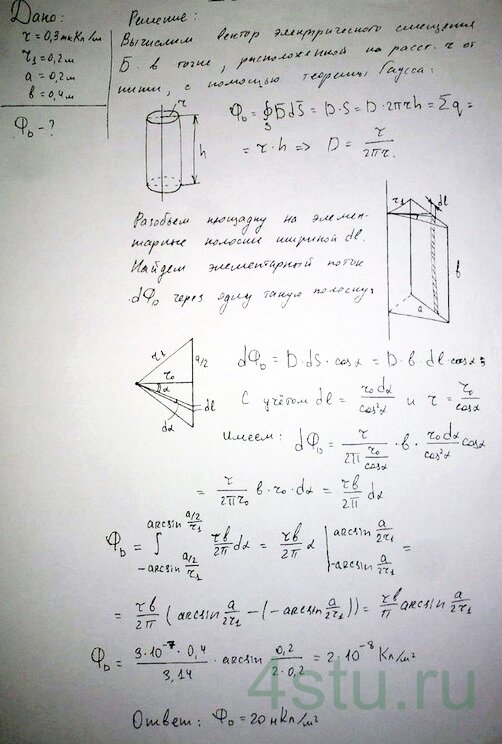 Дано:
τ = 0,3 мкКл/м
r₁ = 0,2м
a = 0,2м
b = 0,4м
Φ_D - ?
Решение:
Вычислим вектор электрического смещения
D̄ в точке, расположенной на расст. r от
нити, с помощью теоремы Гаусса:
r
h
Φ_D = ∮_S D̄dS̄ = D·S = D·2πrh = Σq =
= τ·h => D = τ/2πr.
Разобьем площадку на элемен-
тарные полоски шириной dl.
Найдем элементарный поток
dΦ_D через одну такую полоску:
r₁
dl
b
a
r₁
a/2
r₀
α
dα
dl
dΦ_D = D·dS·cosα = D·b·dl·cosα;
С учётом dl = r₀dα/cos²α и r = r₀/cosα
Имеем: dΦ_D = τ/(2π r₀/cosα) · b · r₀dα/cos²α cosα
= τ/2πr₀ b·r₀·dα = τb/2π dα
Φ_D = ∫_{-arcsin (a/2)/r₁}^{arcsin (a/2)/r₁} τb/2π dα = τb/2π α |_{-arcsin a/2r₁}^{arcsin a/2r₁} =
= τb/2π (arcsin a/2r₁ - (-arcsin a/2r₁)) = τb/π arcsin a/2r₁
Φ_D = 3·10⁻⁷·0,4/3,14 · arcsin 0,2/2·0,2 = 2·10⁻⁸ Кл/м²
4stu.ru
Ответ: Φ_D = 20 нКл/м²